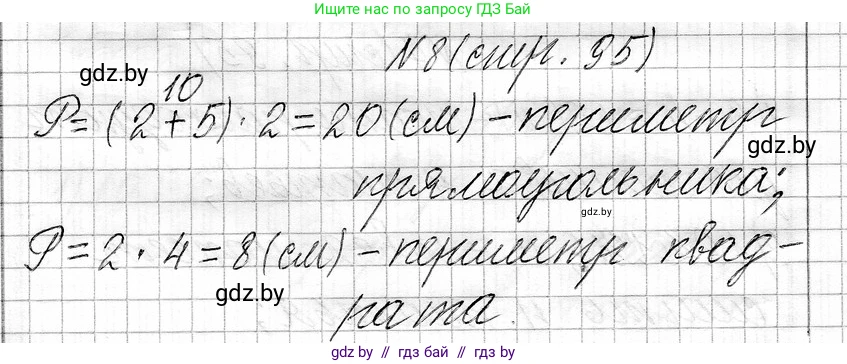 Ищите нас по запросу ГДЗ Бай
N8(стр. 95)
gdz.by
10
P=(2+5)·2=20(см) - периметр
gdz.by
прямоугольника;
gdz.by
P=2·4=8(см) - периметр квад-
gdz.by
рата.
gdz.by // гдз бай // gdz.by